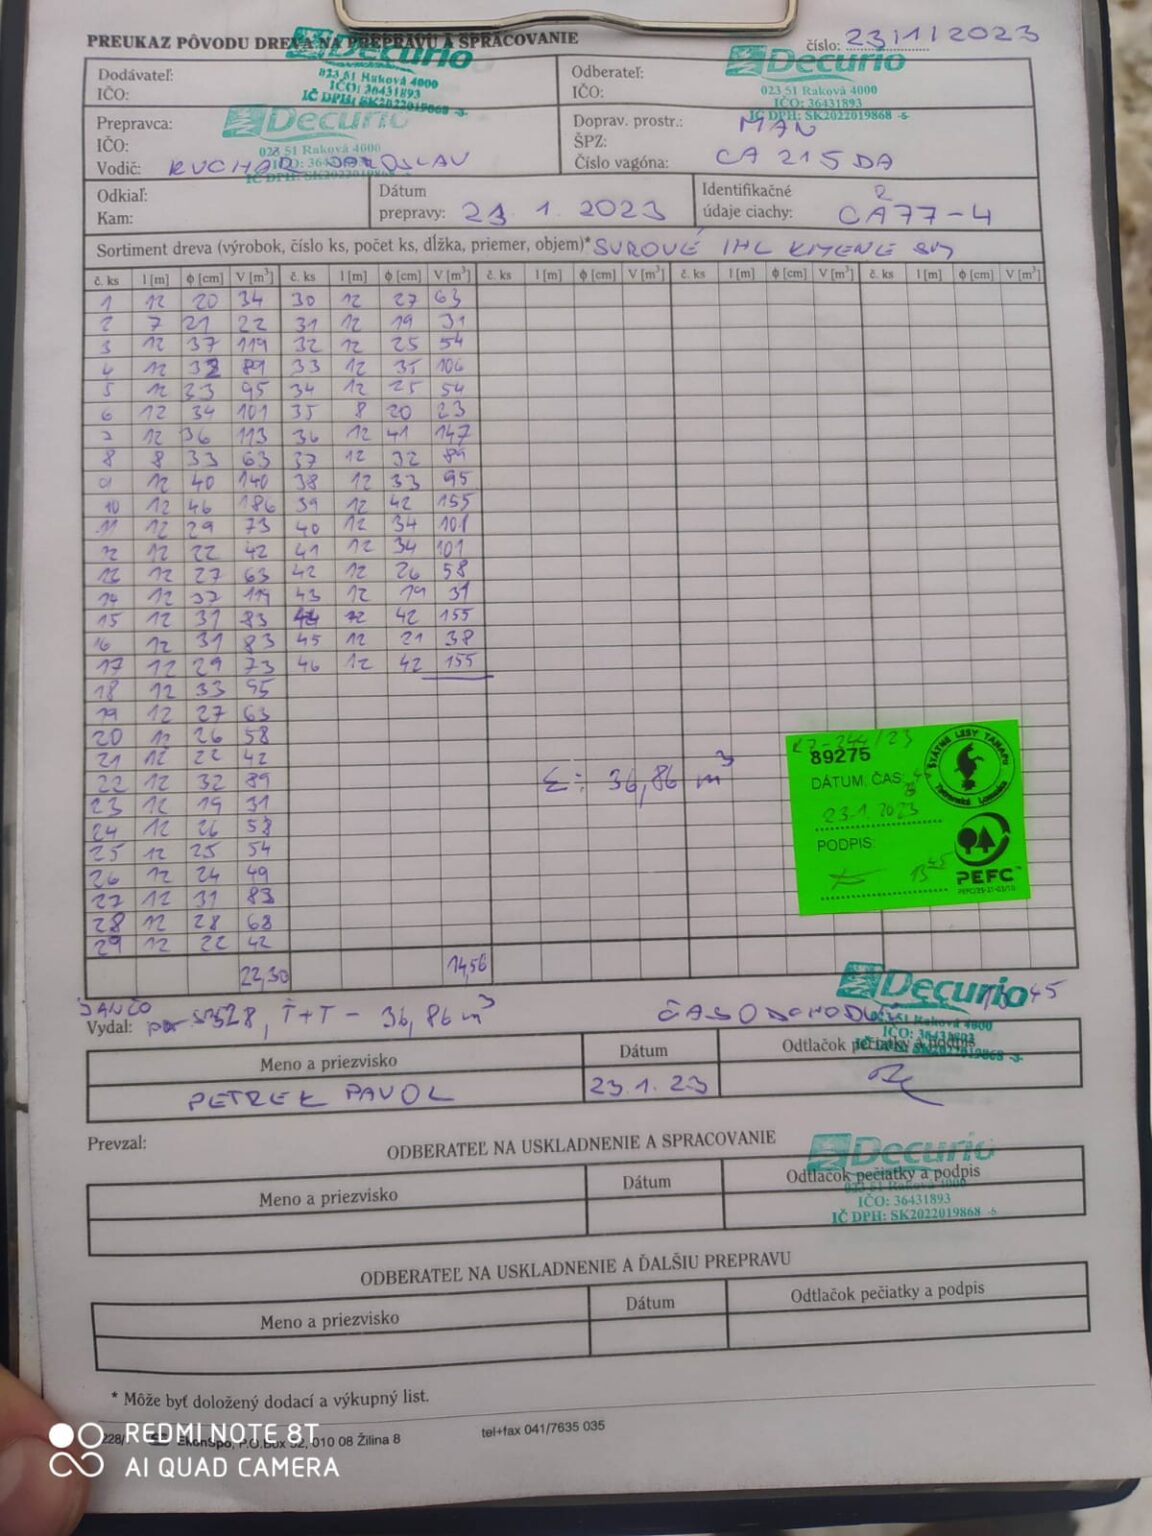 PREUKAZ PÔVODU DREVA NA PREPRAVU A SPRACOVANIE
číslo: 23/1/2023
Decurio
023 51 Raková 4000
IČO: 36431893
IČ DPH: SK2022019868 -5-
Decurio
023 51 Raková 4000
IČO: 36431893
IČ DPH: SK2022019868 -5-
Dodávateľ:
IČO:
Odberateľ:
IČO:
Decurio
023 51 Raková 4000
IČO: 36431893
IČ DPH: SK2022019868 -5-
Prepravca:
IČO:
Vodič: KUCHAR JAROSLAV
Doprav. prostr.: MAN
ŠPZ:
Číslo vagóna: CA 215 DA
Odkiaľ:
Kam:
Dátum prepravy: 23. 1. 2023
Identifikačné údaje ciachy: CA77-4
Sortiment dreva (výrobok, číslo ks, počet ks, dĺžka, priemer, objem)* SUROVÉ IHL KMENE SM
č. ks l [m] ϕ [cm] V [m³] č. ks l [m] ϕ [cm] V [m³] č. ks l [m] ϕ [cm] V [m³] č. ks l [m] ϕ [cm] V [m³] č. ks l [m] ϕ [cm] V [m³]
1 12 20 34 30 12 27 63
2 7 21 22 31 12 19 31
3 12 37 119 32 12 25 54
4 12 32 89 33 12 35 106
5 12 33 95 34 12 25 54
6 12 34 101 35 8 20 23
7 12 36 113 36 12 41 147
8 8 33 63 37 12 32 89
9 12 40 140 38 12 33 95
10 12 46 186 39 12 42 155
11 12 29 73 40 12 34 101
12 12 22 42 41 12 34 101
13 12 27 63 42 12 26 58
14 12 37 119 43 12 19 31
15 12 31 83 44 12 42 155
16 12 31 83 45 12 21 38
17 12 29 73 46 12 42 155
18 12 33 95
19 12 27 63
20 12 26 58
21 12 22 42
22 12 32 89
23 12 19 31
24 12 26 58
25 12 25 54
26 12 24 49
27 12 31 83
28 12 28 68
29 12 22 42
22,30 14,56
Σ: 36,86 m³
89275
DÁTUM, ČAS:
23.1.2023
PODPIS:
15 45
ŠTÁTNE LESY TANAPU
Tatranská Lomnica
PEFC™
Decurio
023 51 Raková 4000
IČO: 36431893
IČ DPH: SK2022019868 -5-
JANČO
Vydal: 328, Ť+T - 36,86 m³
ČAS ODCHODU 45
Meno a priezvisko Dátum Odtlačok pečiatky a podpis
PETREK PAVOL 23.1.23
Prevzal:
ODBERATEĽ NA USKLADNENIE A SPRACOVANIE
Meno a priezvisko Dátum Odtlačok pečiatky a podpis
Decurio
023 51 Raková 4000
IČO: 36431893
IČ DPH: SK2022019868 -5-
ODBERATEĽ NA USKLADNENIE A ĎALŠIU PREPRAVU
Meno a priezvisko Dátum Odtlačok pečiatky a podpis
* Môže byť doložený dodací a výkupný list.
228/ EkonSpo, P.O.Box 52, 010 08 Žilina 8 tel+fax 041/7635 035
REDMI NOTE 8T
AI QUAD CAMERA